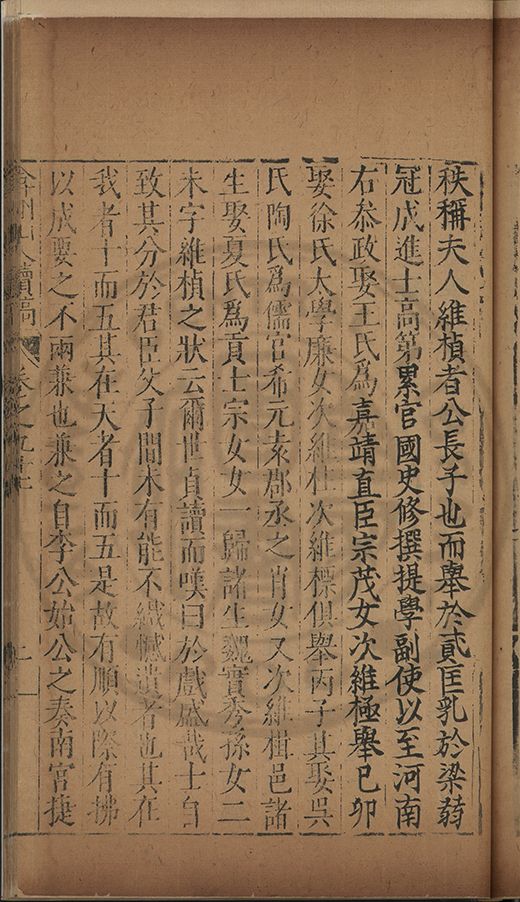 秩稱夫人維楨者公長子也而舉於貳室乳於梁弱
冠成進士高第累官國史修撰提學副使以至河南
右叅政娶王氏爲嘉靖直臣宗茂女次維極舉已卯
娶徐氏太學廉女次維柱次維標俱舉丙子其娶吳
氏陶氏爲儒官希元袁郡丞之肖女又次維楫邑諸
生娶夏氏爲貢士宗女女一歸諸生魏實秀孫女二
未字維楨之狀云爾世貞讀而嘆曰於戲盛哉士自
致其分於君臣父子間木有能不纎憾遺者也其在
我者十而五其在天者十而五是故有順以際有拂
以成要之不兩兼也兼之自李公始公之奏南宮捷
弇州山人續稿 卷之九十三